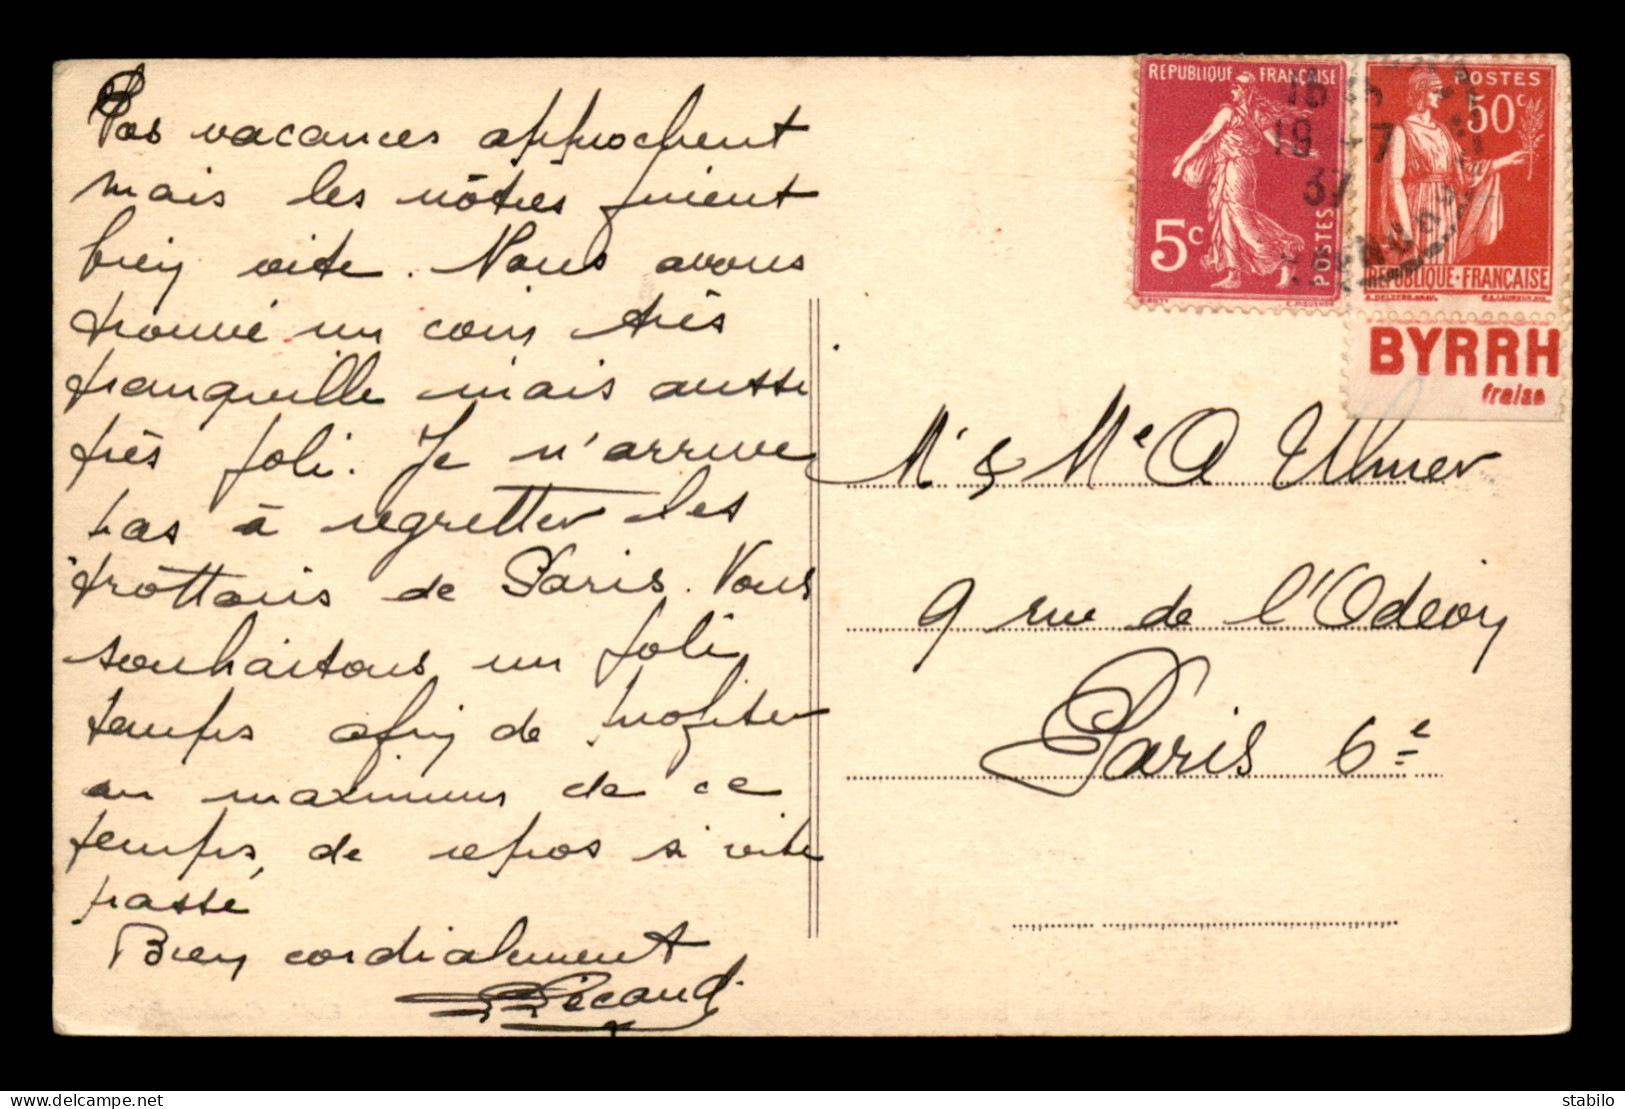 Vos vacances approchent
mais les nôtres fuient
bien vite. Nous avons
trouvé un coin très
tranquille mais aussi
très joli. Je n'arrive
pas à regretter les
trottoirs de Paris. Vous
souhaitons un joli
temps afin de profiter
au maximum de ce
temps, de repos si vite
passé
Bien cordialement
Pécaud
REPUBLIQUE FRANÇAISE
5c
POSTES
16
19 -7
37
POSTES
50c
REPUBLIQUE·FRANÇAISE
BYRRH
fraise
Mr & Me A Ulmer
9 rue de l'Odéon
Paris 6e
delcampe.net
stabilo